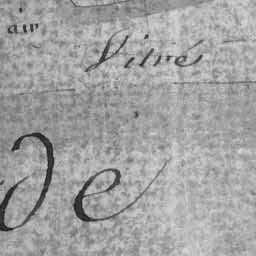 air
Vitré
de